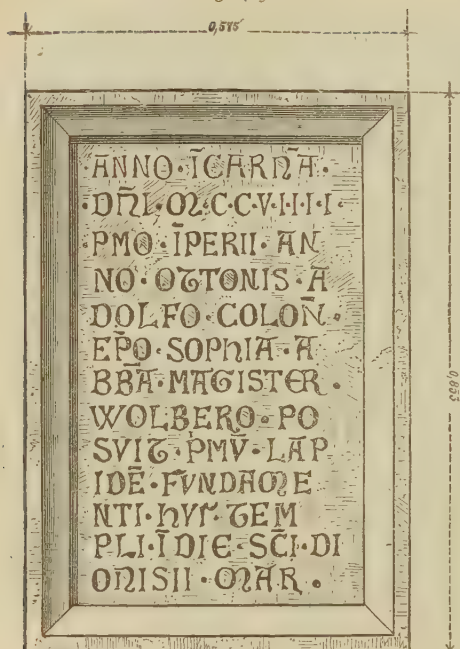 0,585
·ANNO·ĪCARNĀ·
·DN̄I·M·C·C·V·I·I·I·I·
PMO·ĪPERII·AN
NO·OTTONIS·A
DOLFO·COLON̄·
EP̄O·SOPHIA·A
BB̄A·MAGISTER·
WOLBERO·PO
SVIT·PMV̄·LAP
IDĒ·FVNDAME
NTI·HVI'·TEM
PLI·Ī DIE·SC̄I·DI
ONISII·MAR̄·
0,853